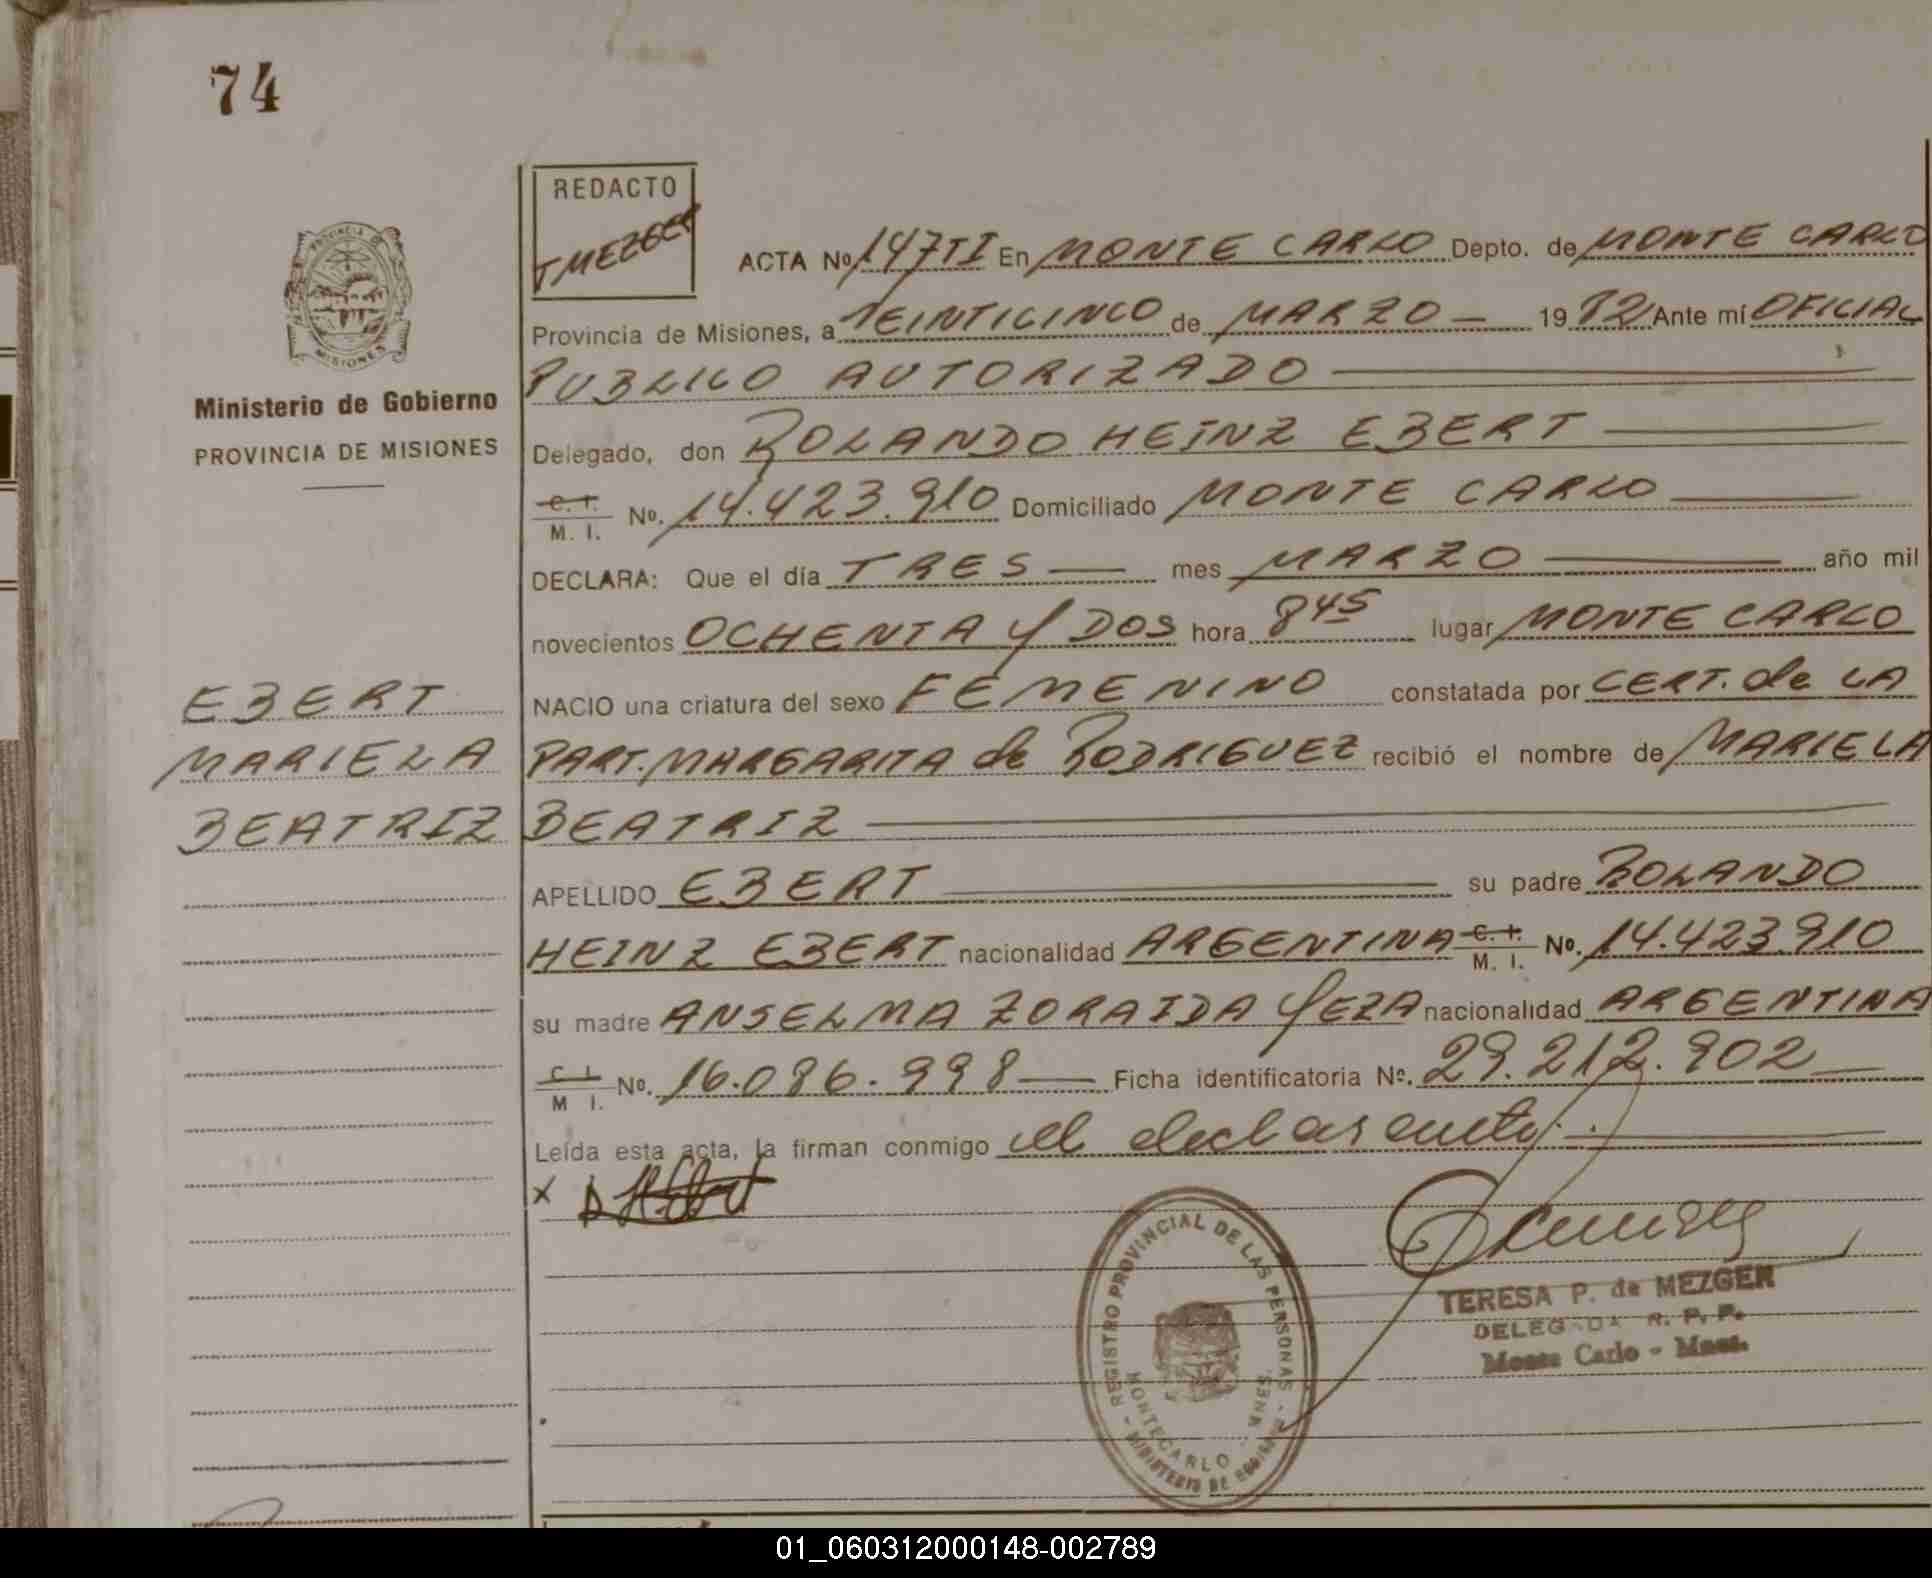 74
REDACTO
T MEZGER
PROVINCIA DE
MISIONES
Ministerio de Gobierno
PROVINCIA DE MISIONES
ACTA Nº 147TI En MONTE CARLO Depto. de MONTE CARLO
Provincia de Misiones, a VEINTICINCO de MARZO 1982 Ante mí OFICIAL
PUBLICO AUTORIZADO
Delegado, don ROLANDO HEINZ EBERT
C. I. M. I. Nº. 14.423.910 Domiciliado MONTE CARLO
DECLARA: Que el día TRES mes MARZO año mil
novecientos OCHENTA Y DOS hora 8 45 lugar MONTE CARLO
NACIO una criatura del sexo FEMENINO constatada por CERT. de LA
PART. MARGARITA de RODRIGUEZ recibió el nombre de MARIELA
BEATRIZ
APELLIDO EBERT su padre ROLANDO
HEINZ EBERT nacionalidad ARGENTINA C. I. M. I. Nº. 14.423.910
su madre ANSELMA ZORAIDA YEZA nacionalidad ARGENTINA
C. I. M. I. Nº. 16.086.998 Ficha identificatoria Nº. 29.212.902
Leída esta acta, la firman conmigo el declarante
EBERT
MARIELA
BEATRIZ
X
REGISTRO PROVINCIAL DE LAS PERSONAS
MONTECARLO - MNES.
MINISTERIO DE GOBIERNO
TERESA P. de MEZGER
DELEGADA R. P. P.
Monte Carlo - Mnes.
01_060312000148-002789